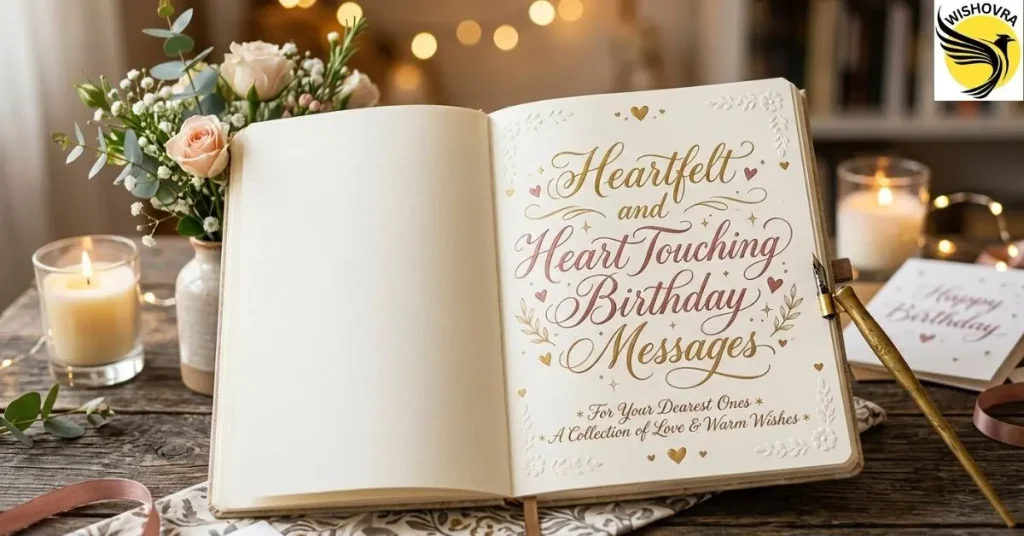 WISHOVRA
Heartfelt
and
Heart Touching
Birthday
Messages
* For Your Dearest Ones *
* A Collection of Love & Warm Wishes *
Happy
Birthday